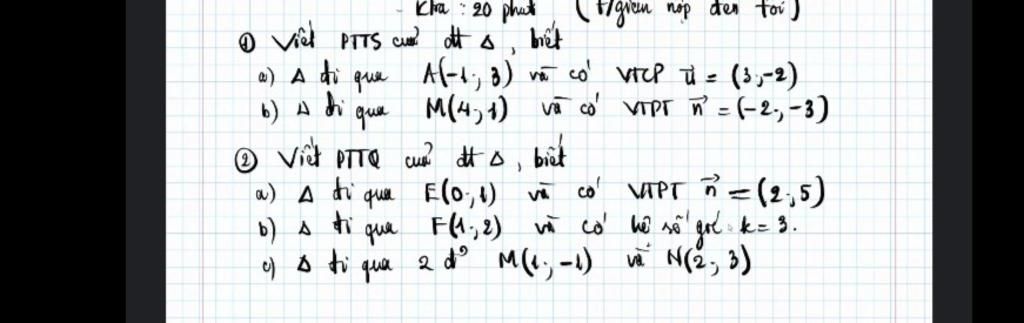 - Ktra : 20 phút (t/gian nộp đến tối)
① Viết PTTS của đt Δ, biết
a) Δ đi qua A(-1; 3) và có VTCP u⃗ = (3;-2)
b) Δ đi qua M(4;1) và có VTPT n⃗ = (-2;-3)
② Viết PTTQ của đt Δ, biết
a) Δ đi qua E(0;1) và có VTPT n⃗ = (2;5)
b) Δ đi qua F(1;2) và có hệ số góc k = 3.
c) Δ đi qua 2 đ' M(1;-1) và N(2; 3)